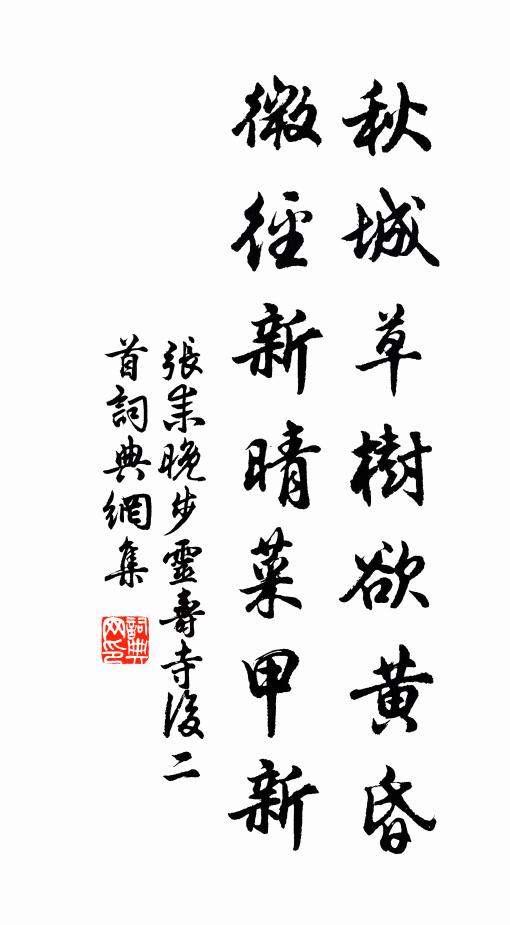 秋城草樹欲黃昏
微徑新晴菜甲新
張耒晚步靈壽寺後二
首詞典網集
詞典网印